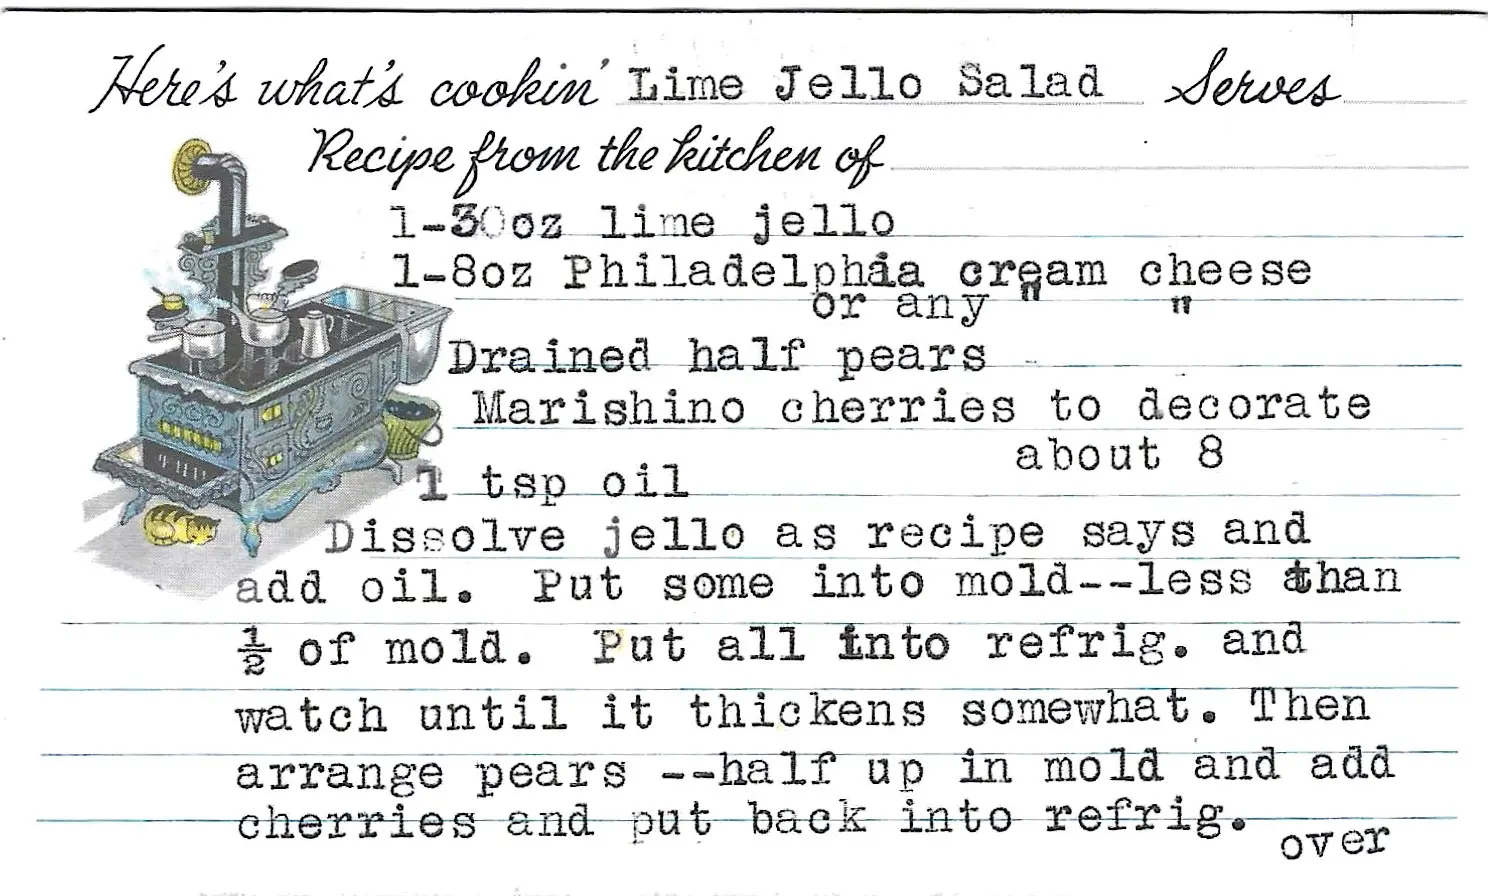 Here's what's cookin' Lime Jello Salad Serves
Recipe from the kitchen of
1-30oz lime jello
1-8oz Philadelphia cream cheese
or any " "
Drained half pears
Marishino cherries to decorate
about 8
1 tsp oil
Dissolve jello as recipe says and
add oil. Put some into mold--less than
½ of mold. Put all into refrig. and
watch until it thickens somewhat. Then
arrange pears --half up in mold and add
cherries and put back into refrig.
over